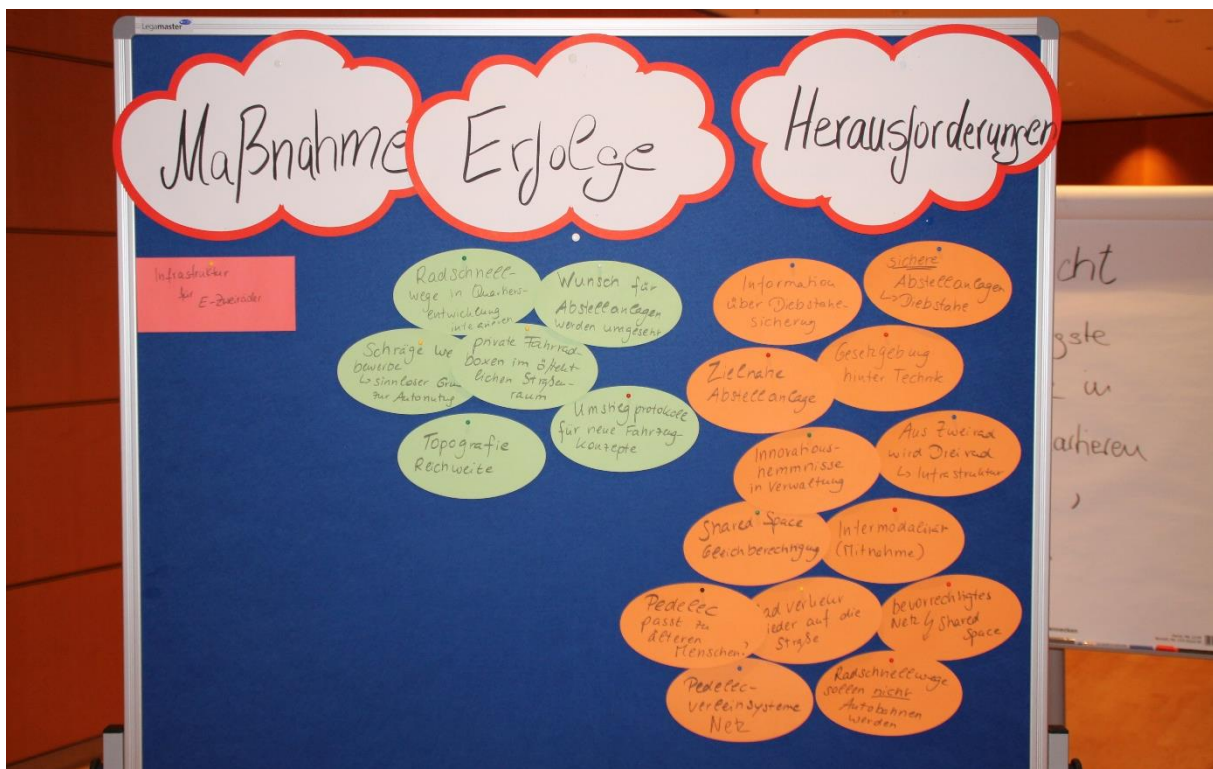 Legamaster
Maßnahme
Erfolge
Herausforderungen
Infrastruktur
für
E-Zweiräder
Radschnell-
wege in Quartiers-
entwicklung
Wunsch für
Abstellanlagen
werden umgesetzt
Schräge
bewerbe
↳ sinnloser
zur Autonutzg
private Fahrrad-
boxen im öffent-
lichen Straßen-
raum
Umstiegprotokoll
für neue Fahrzeug
Konzepte
Topografie
Reichweite
Information
über Diebstahl-
sicherung
sichere
Abstellanlagen
↳ Diebstahl
Zielnahe
Abstellanlage
Gesetzgebung
hinter Technik
Innovations-
hemmnisse
in Verwaltung
Aus Zweirad
wird Dreirad
↳ Infrastruktur
Shared Space
Gleichberechtigung
Intermodalität
(Mitnahme)
Pedelec
passt zu
älteren
Menschen?
ad verkehr
ieder auf die
Straße
bevorrechtigtes
Netz ↯ Shared
Space
Pedelec-
verleihsysteme
Netz
Radschnellwege
sollen nicht
Autobahnen
werden
cht
gste
in